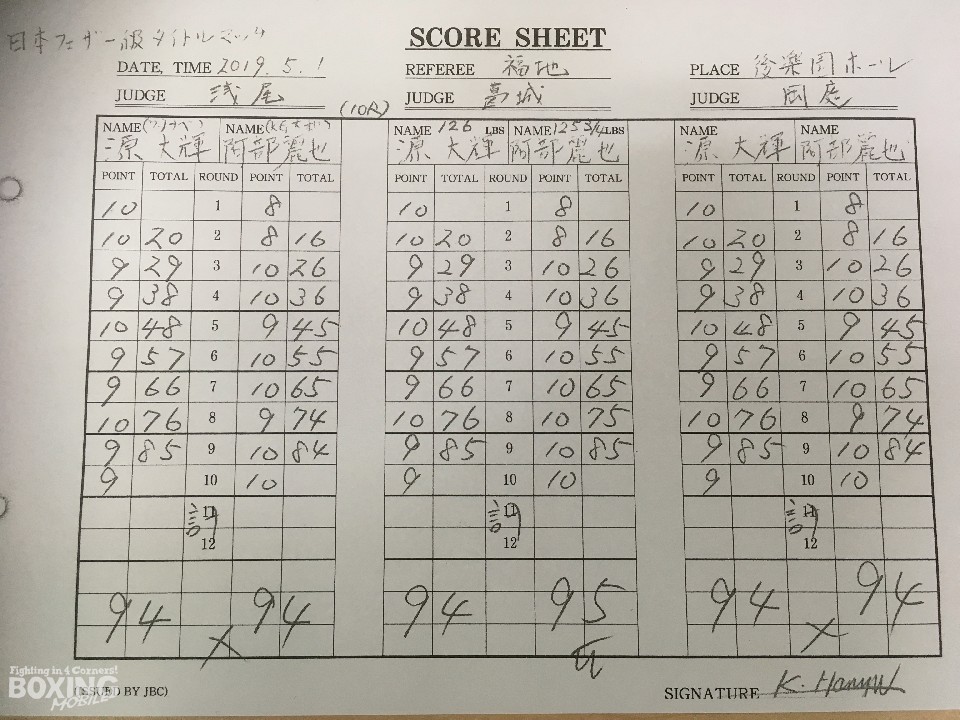 SCORE SHEET
日本フェザー級タイトルマッチ
DATE, TIME 2019.5.1 REFEREE 福地 PLACE 後楽園ホール
JUDGE 浅尾 JUDGE 葛城 JUDGE 岡庭
(10R)
NAME (ワタナベ) NAME NAME 126 LBS NAME 125 3/4 LBS NAME NAME
源 大輝 阿部麗也 源 大輝 阿部麗也 源 大輝 阿部麗也
POINT TOTAL ROUND POINT TOTAL POINT TOTAL ROUND POINT TOTAL POINT TOTAL ROUND POINT TOTAL
10 1 8 10 1 8 10 1 8
10 20 2 8 16 10 20 2 8 16 10 20 2 8 16
9 29 3 10 26 9 29 3 10 26 9 29 3 10 26
9 38 4 10 36 9 38 4 10 36 9 38 4 10 36
10 48 5 9 45 10 48 5 9 45 10 48 5 9 45
9 57 6 10 55 9 57 6 10 55 9 57 6 10 55
9 66 7 10 65 9 66 7 10 65 9 66 7 10 65
10 76 8 9 74 10 76 8 10 75 10 76 8 9 74
9 85 9 10 84 9 85 9 10 85 9 85 9 10 84
9 10 10 9 10 10 9 10 10
11 11 11
12 12 12
94 94 94 95 94 94
Fighting in 4 Corners!
BOXING
MOBILE
(ISSUED BY JBC) SIGNATURE